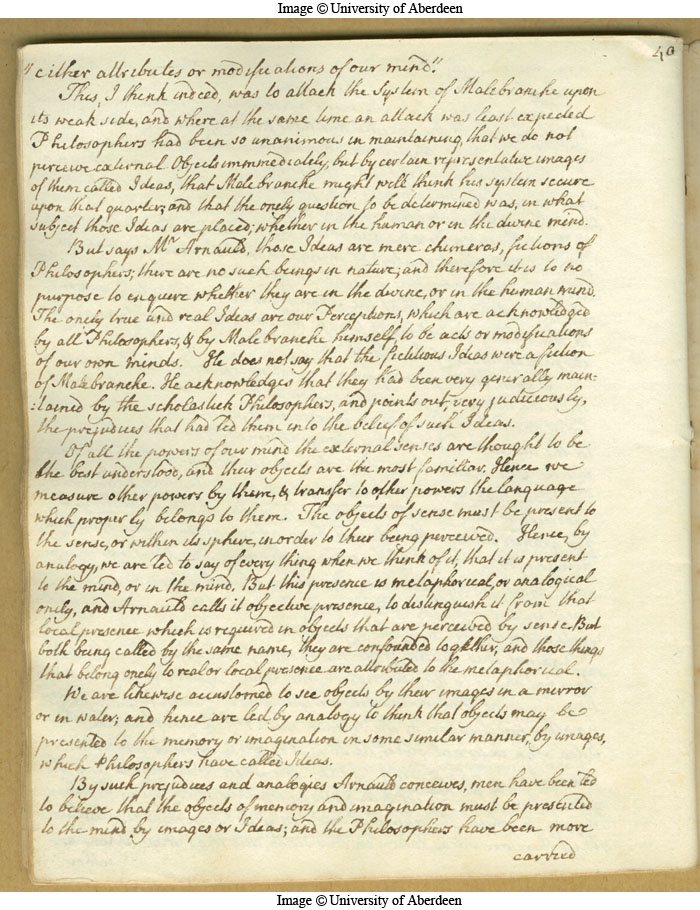 Image © University of Aberdeen
40
"either attributes or modifications of our mind."
This, I think indeed, was to attack the System of Malebranche upon
its weak side, and where at the same time an attack was least expected
Philosophers had been so unanimous in maintaining that we do not
perceive external Objects immediately, but by certain representative images
of them called Ideas, that Malebranche might well think his system secure
upon that quarter; and that the onely question to be determined was, in what
subject those Ideas are placed; whether in the human or in the divine mind.
But says Mr Arnauld, those Ideas are mere chimeras, fictions of
Philosophers; there are no such beings in nature; and therefore it is to no
purpose to enquire whether they are in the divine, or in the human mind.
The onely true and real Ideas are our Perceptions, which are acknowledged
by all Philosophers, & by Malebranche himself, to be acts or modifications
of our own minds. He does not say that the fictitious Ideas were a fiction
of Malebranche. He acknowledges that they had been very generally main:
:tained by the scholastick Philosophers, and points out, very judiciously,
the prejudices that had led them into the belief of such Ideas.
Of all the powers of our mind the external senses are thought to be
the best understood, and their objects are the most familiar. Hence we
measure other powers by them, & transfer to other powers the language
which properly belongs to them. The objects of sense must be present to
the sense, or within its sphere, in order to their being perceived. Hence, by
analogy, we are led to say of every thing when we think of it, that it is present
to the mind, or in the mind. But this presence is metaphorical, or analogical
onely, and Arnauld calls it objective presence, to distinguish it from that
local presence which is required in objects that are perceived by sense. But
both being called by the same name, they are confounded together, and those things
that belong onely to real or local presence are attributed to the metaphorical.
We are likewise accustomed to see objects by their images in a mirror
or in water; and hence are led by analogy to think that objects may be
presented to the memory or imagination in some similar manner, by images,
which Philosophers have called Ideas.
By such prejudices and analogies Arnauld conceives, men have been led
to believe that the objects of memory and imagination must be presented
to the mind by images or Ideas; and the Philosophers have been more
carried
Image © University of Aberdeen